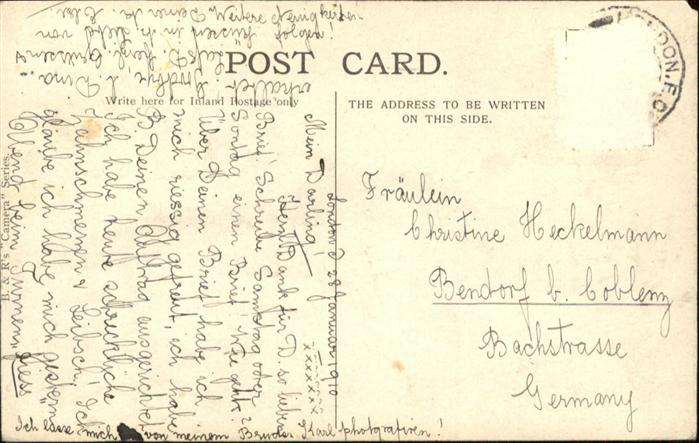 POST CARD.
Write here for Inland Postage only
THE ADDRESS TO BE WRITTEN
ON THIS SIDE.
B. & R's "Camera" Series.
LONDON. F.O.
Fräulein
Christine Heckelmann
Bendorf b. Coblenz
Bachstrasse
Germany
London d 28 Januar 1910
xxxxxxx
Mein Darling!
Herzl. Dank für D. so lieben
Brief. Schreibe Samstag oder
Sontag einen Brief. Wie geht's?
Über Deinen Brief habe ich
mich riessig gefreut, ich habe
Deinen Auftrag ausgerichtet
Ich habe heute schreckliche
Zahnschmerzen & Leibsch. Ich
glaube ich habe mich gestern
Abend beim Turnen
erhältlich
Weitere Neuigkeiten
folgen!
Ich lasse mich von meinem Bruder Karl photografiren!